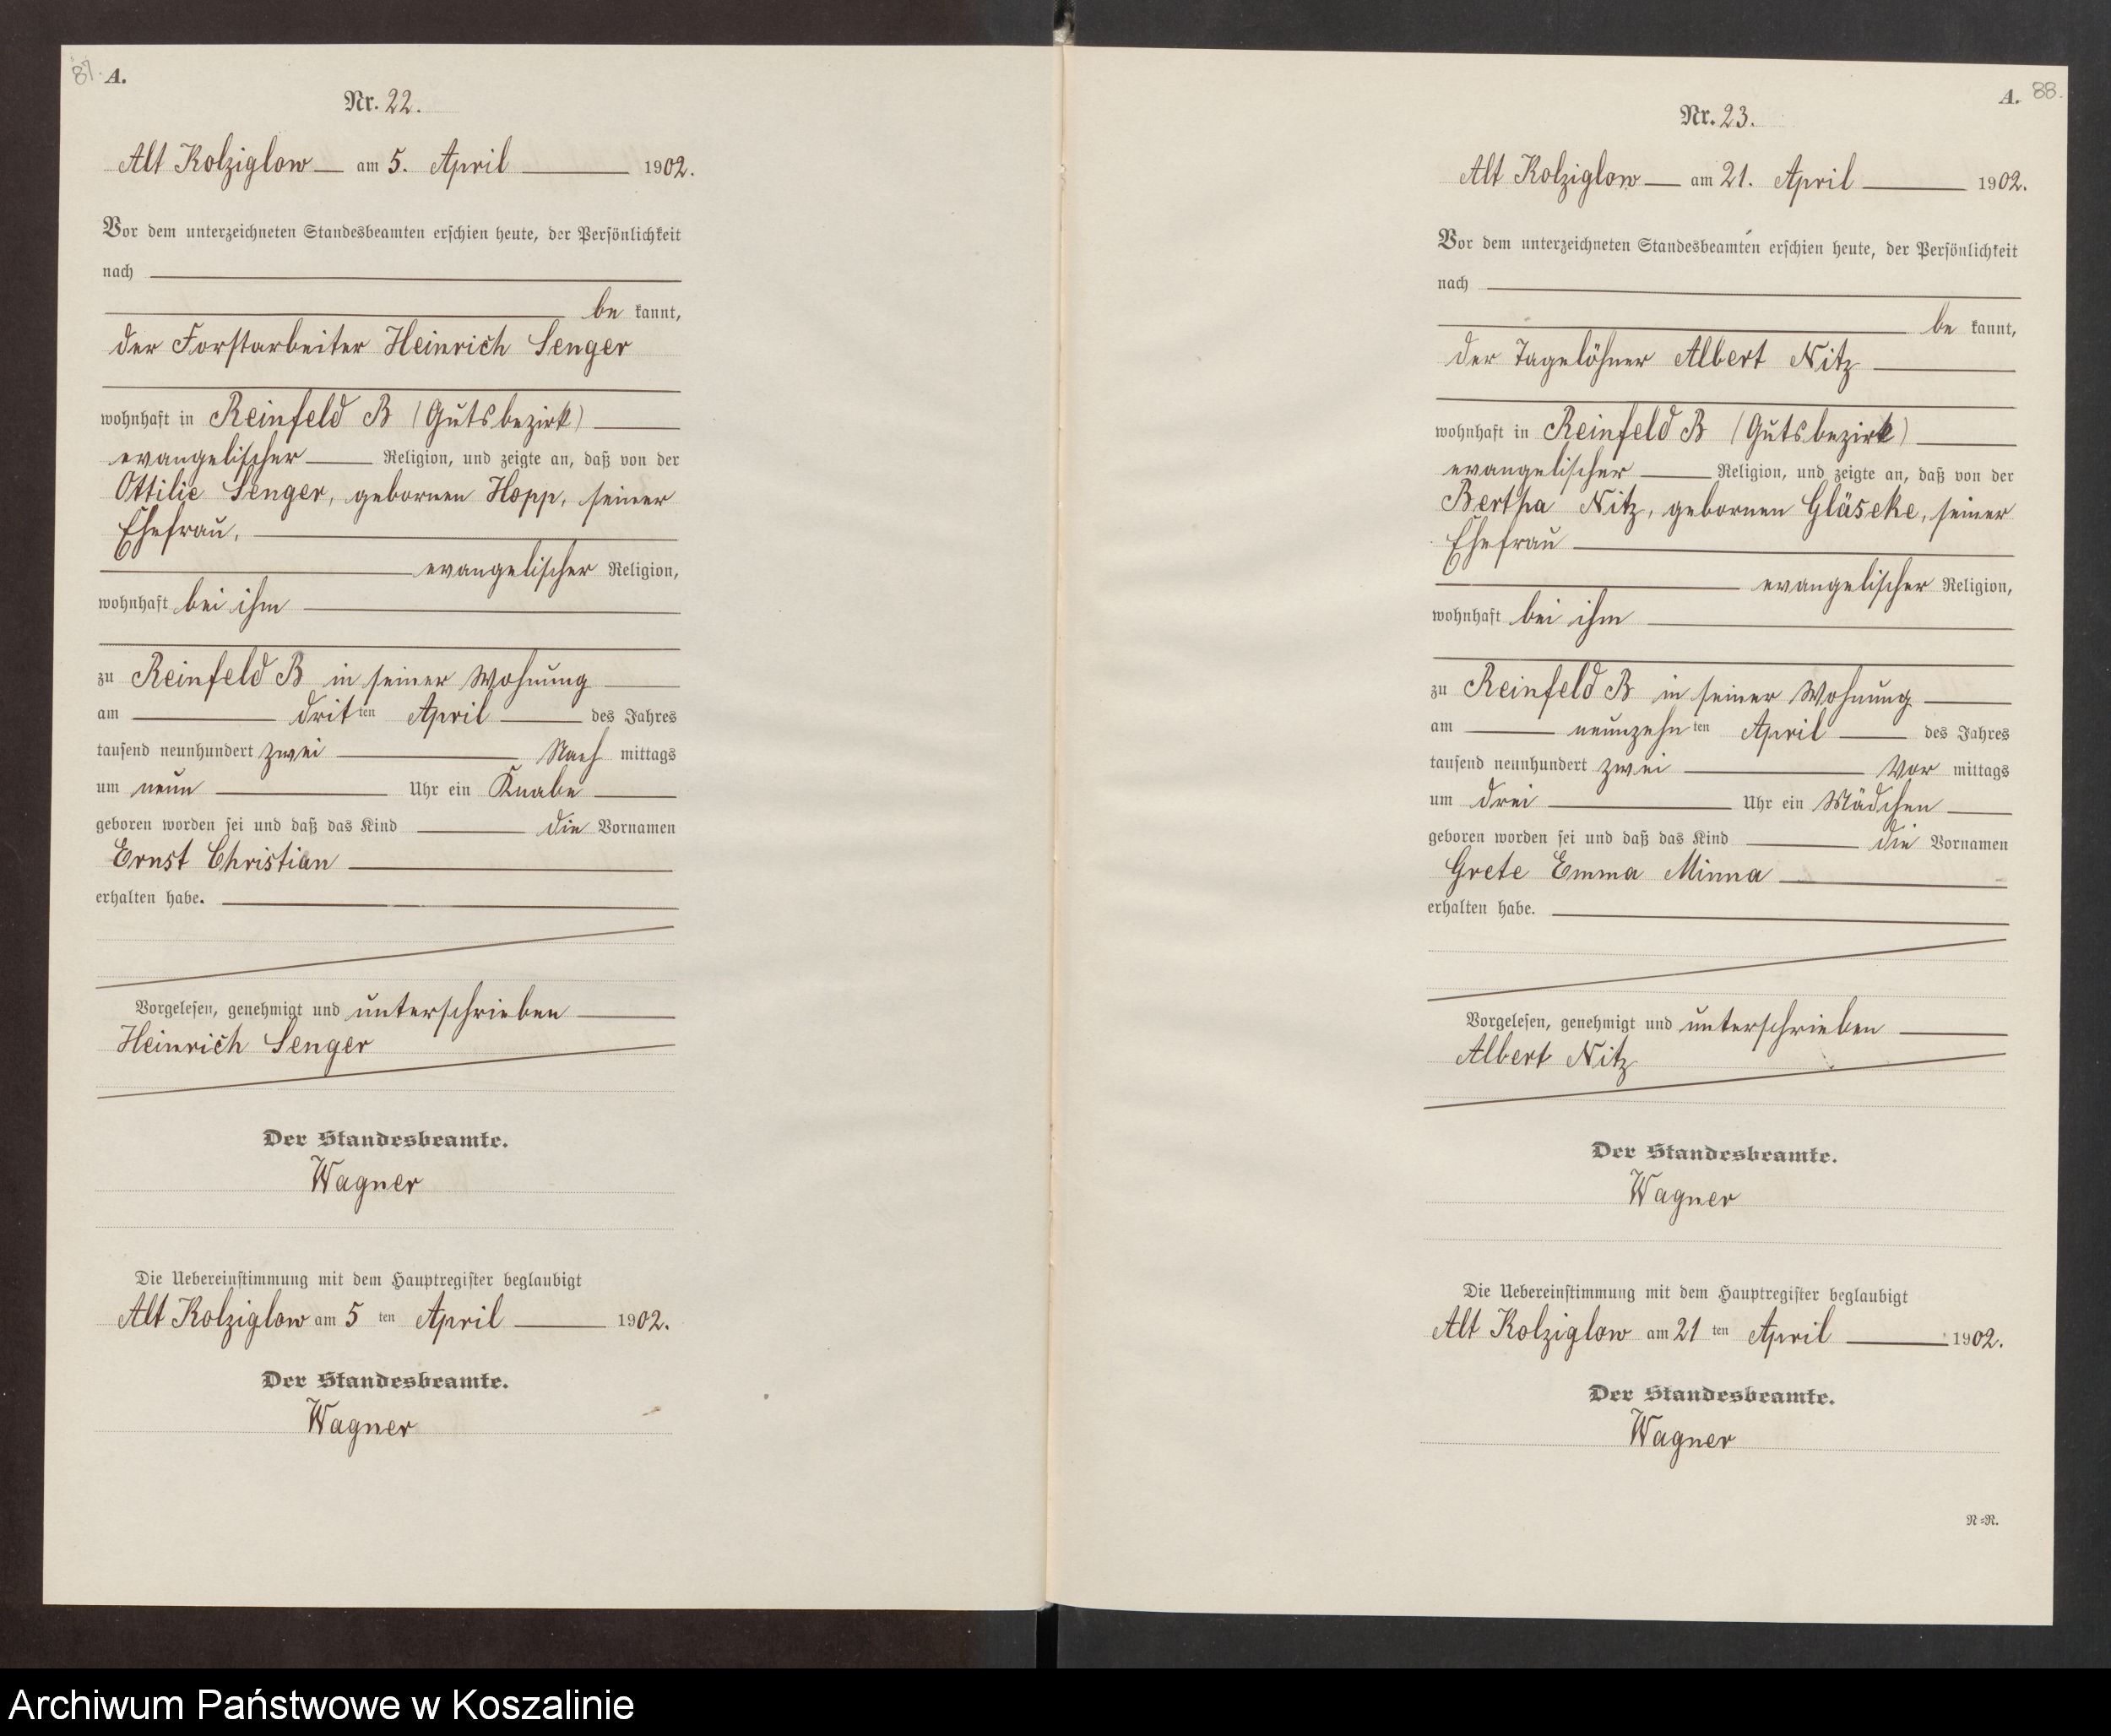 87. A.
Nr. 22.
Alt Kolziglow am 5. April 1902.
Vor dem unterzeichneten Standesbeamten erschien heute, der Persönlichkeit
nach
be kannt,
der Forstarbeiter Heinrich Senger
wohnhaft in Reinfeld B (Gutsbezirk)
evangelischer Religion, und zeigte an, daß von der
Ottilie Senger, gebornen Hopp, seiner
Ehefrau,
evangelischer Religion,
wohnhaft bei ihm
zu Reinfeld B in seiner Wohnung
am dritten April des Jahres
tausend neunhundert zwei Nach mittags
um neun Uhr ein Knabe
geboren worden sei und daß das Kind die Vornamen
Ernst Christian
erhalten habe.
Vorgelesen, genehmigt und unterschrieben
Heinrich Senger
Der Standesbeamte.
Wagner
Die Uebereinstimmung mit dem Hauptregister beglaubigt
Alt Kolziglow am 5 ten April 1902.
Der Standesbeamte.
Wagner
A. 88.
Nr. 23.
Alt Kolziglow am 21. April 1902.
Vor dem unterzeichneten Standesbeamten erschien heute, der Persönlichkeit
nach
be kannt,
der Tagelöhner Albert Nitz
wohnhaft in Reinfeld B (Gutsbezirk)
evangelischer Religion, und zeigte an, daß von der
Bertha Nitz, gebornen Gläseke, seiner
Ehefrau
evangelischer Religion,
wohnhaft bei ihm
zu Reinfeld B in seiner Wohnung
am neunzehnten April des Jahres
tausend neunhundert zwei Vor mittags
um drei Uhr ein Mädchen
geboren worden sei und daß das Kind die Vornamen
Grete Emma Minna
erhalten habe.
Vorgelesen, genehmigt und unterschrieben
Albert Nitz
Der Standesbeamte.
Wagner
Die Uebereinstimmung mit dem Hauptregister beglaubigt
Alt Kolziglow am 21 ten April 1902.
Der Standesbeamte.
Wagner
N=R.
Archiwum Państwowe w Koszalinie